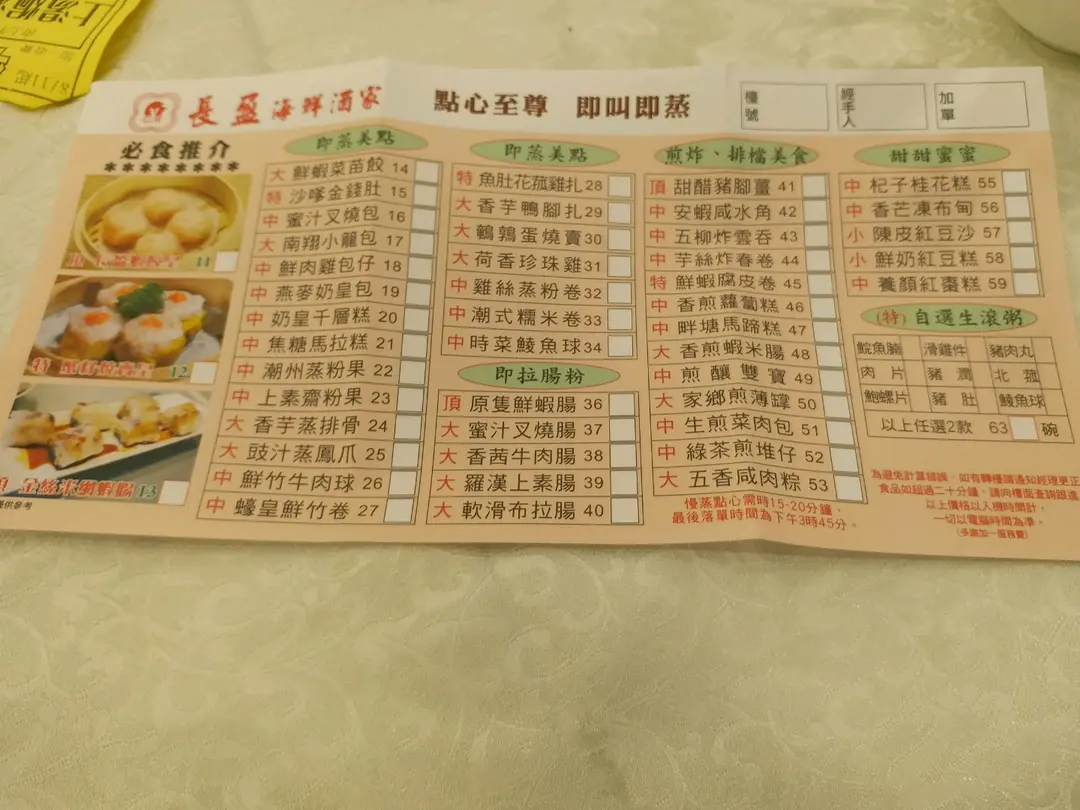 長盈海鮮酒家
點心至尊 即叫即蒸
檯號
經手人
加單
必食推介
********
11
特
12
13
僅供參考
即蒸美點
大 鮮蝦菜苗餃 14
特 沙嗲金錢肚 15
中 蜜汁叉燒包 16
大 南翔小籠包 17
中 鮮肉雞包仔 18
中 燕麥奶皇包 19
中 奶皇千層糕 20
中 焦糖馬拉糕 21
中 潮州蒸粉果 22
中 上素齋粉果 23
大 香芋蒸排骨 24
大 豉汁蒸鳳爪 25
中 鮮竹牛肉球 26
中 蠔皇鮮竹卷 27
即蒸美點
特 魚肚花菰雞扎 28
大 香芋鴨腳扎 29
大 鵪鶉蛋燒賣 30
大 荷香珍珠雞 31
中 雞絲蒸粉卷 32
中 潮式糯米卷 33
中 時菜鯪魚球 34
即拉腸粉
頂 原隻鮮蝦腸 36
大 蜜汁叉燒腸 37
大 香茜牛肉腸 38
大 羅漢上素腸 39
大 軟滑布拉腸 40
煎炸、排檔美食
頂 甜醋豬腳薑 41
中 安蝦咸水角 42
中 五柳炸雲吞 43
中 芋絲炸春卷 44
特 鮮蝦腐皮卷 45
中 香煎蘿蔔糕 46
中 畔塘馬蹄糕 47
大 香煎蝦米腸 48
中 煎釀雙寶 49
大 家鄉煎薄罉 50
中 生煎菜肉包 51
中 綠茶煎堆仔 52
大 五香咸肉粽 53
慢蒸點心需時15-20分鐘，
最後落單時間為下午3時45分。
甜甜蜜蜜
中 杞子桂花糕 55
中 香芒凍布甸 56
小 陳皮紅豆沙 57
小 鮮奶紅豆糕 58
中 養顏紅棗糕 59
(特) 自選生滾粥
鯇魚腩 滑雞件 豬肉丸
肉片 豬潤 北菰
鮑螺片 豬肚 鯪魚球
以上任選2款 63 碗
為避免計算錯誤，如有轉檯請通知經理更正
食品如超過二十分鐘，請向樓面查詢跟進
以上價格以入機時間計，
一切以電腦時間為準。
(多謝加一服務費)